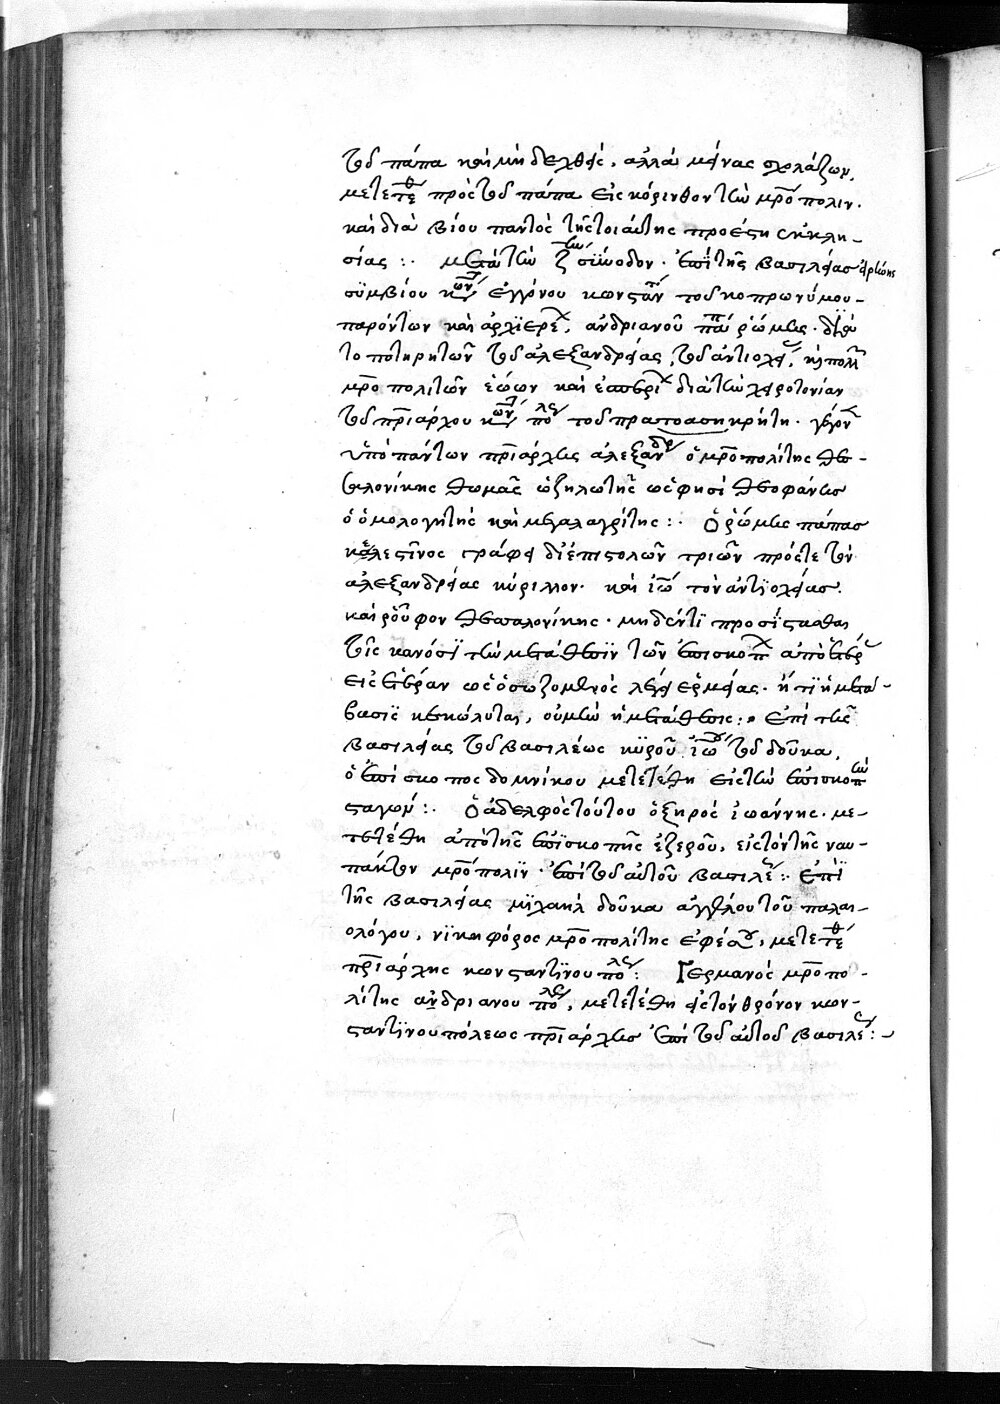 τοῦ πάπα καὶ μὴ δεχθεὶς, ἀλλὰ μείνας σχολάζων,
μετετέθη πρὸς τοῦ πάπα εἰς κόρινθον τὴν μρόπολιν.
καὶ διὰ βίου παντὸς τῆς τοιαύτης προέστη ἐκκλη-
σίας :. μετὰ τὴν ζ σύνοδον. ἐπὶ τῆς βασιλείας εἰρήνης
συμβίου καὶ ἐγγόνου κωνσταντίνου τοῦ κοπρωνύμου-
παρόντων καὶ ἀρχιερέων, ἀνδριανοῦ πάπα ῥώμης. διὰ
τοποτηρητῶν τοῦ ἀλεξανδρείας, τοῦ ἀντιοχείας, καὶ πολλῶν
μροπολιτῶν ἑώων καὶ ἑσπερίων διὰ τὴν χειροτονίαν
τοῦ πριάρχου κων πόλεως τοῦ πρωτοασηκρήτη. γέγονε
ὑπὸ πάντων πριάρχης ἀλεξανδρείας ὁ μροπολίτης θε-
σαλονίκης θωμᾶς ὁ ζηλωτὴς ὥς φησι θεοφάνης
ὁ ὁμολογητὴς καὶ μεγαλαγρίτης :. Ὁ ῥώμης πάπας
κελεστῖνος γράφει δι ἐπιστολῶν τριῶν πρός τε τὸν
ἀλεξανδρείας κύριλλον. καὶ ἰω τὸν ἀντιοχείας.
καὶ ῥοῦφον θεσαλονίκης. μηδέν τι προσίστασθαι
τοῖς κανόσι τὴν μετάθεσιν τῶν ἐπισκόπων ἀπὸ ἑτέρας
εἰς ἑτέραν ὡς ὁ σωζομενὸς λέγει ἑρμείας. ἤ τι ἡ μετά-
βασις κεκώλυται, οὐ μὴν ἡ μετάθεσις :. ἐπὶ τῆς
βασιλείας τοῦ βασιλέως κυροῦ ἰω τοῦ δούκα,
ὁ ἐπίσκοπος δομνίκου μετετέθη εἰς τὴν ἐπισκοπὴν
σταγων :. Ὁ ἀδελφὸς τούτου ὁ ξηρὸς ἰωάννης. με-
τετέθη ἀπὸ τῆς ἐπισκοπῆς ἐζεροῦ, εἰς τὸν τῆς ναυ-
πάκτου μρόπολιν. ἐπὶ τοῦ αὐτοῦ βασιλέως :. ἐπὶ
τῆς βασιλείας μιχαὴλ δούκα ἀγγέλου τοῦ παλαι-
ολόγου, νικηφόρος μροπολίτης ἐφέσου, μετετέθη
πριάρχης κωνσταντίνου πόλεως : Γερμανὸς μροπο-
λίτης ἀνδριανου πόλεως, μετετέθη εἰς τὸν θρόνον κων-
σταντινουπόλεως πριάρχης ἐπὶ τοῦ αὐτοῦ βασιλέως :-